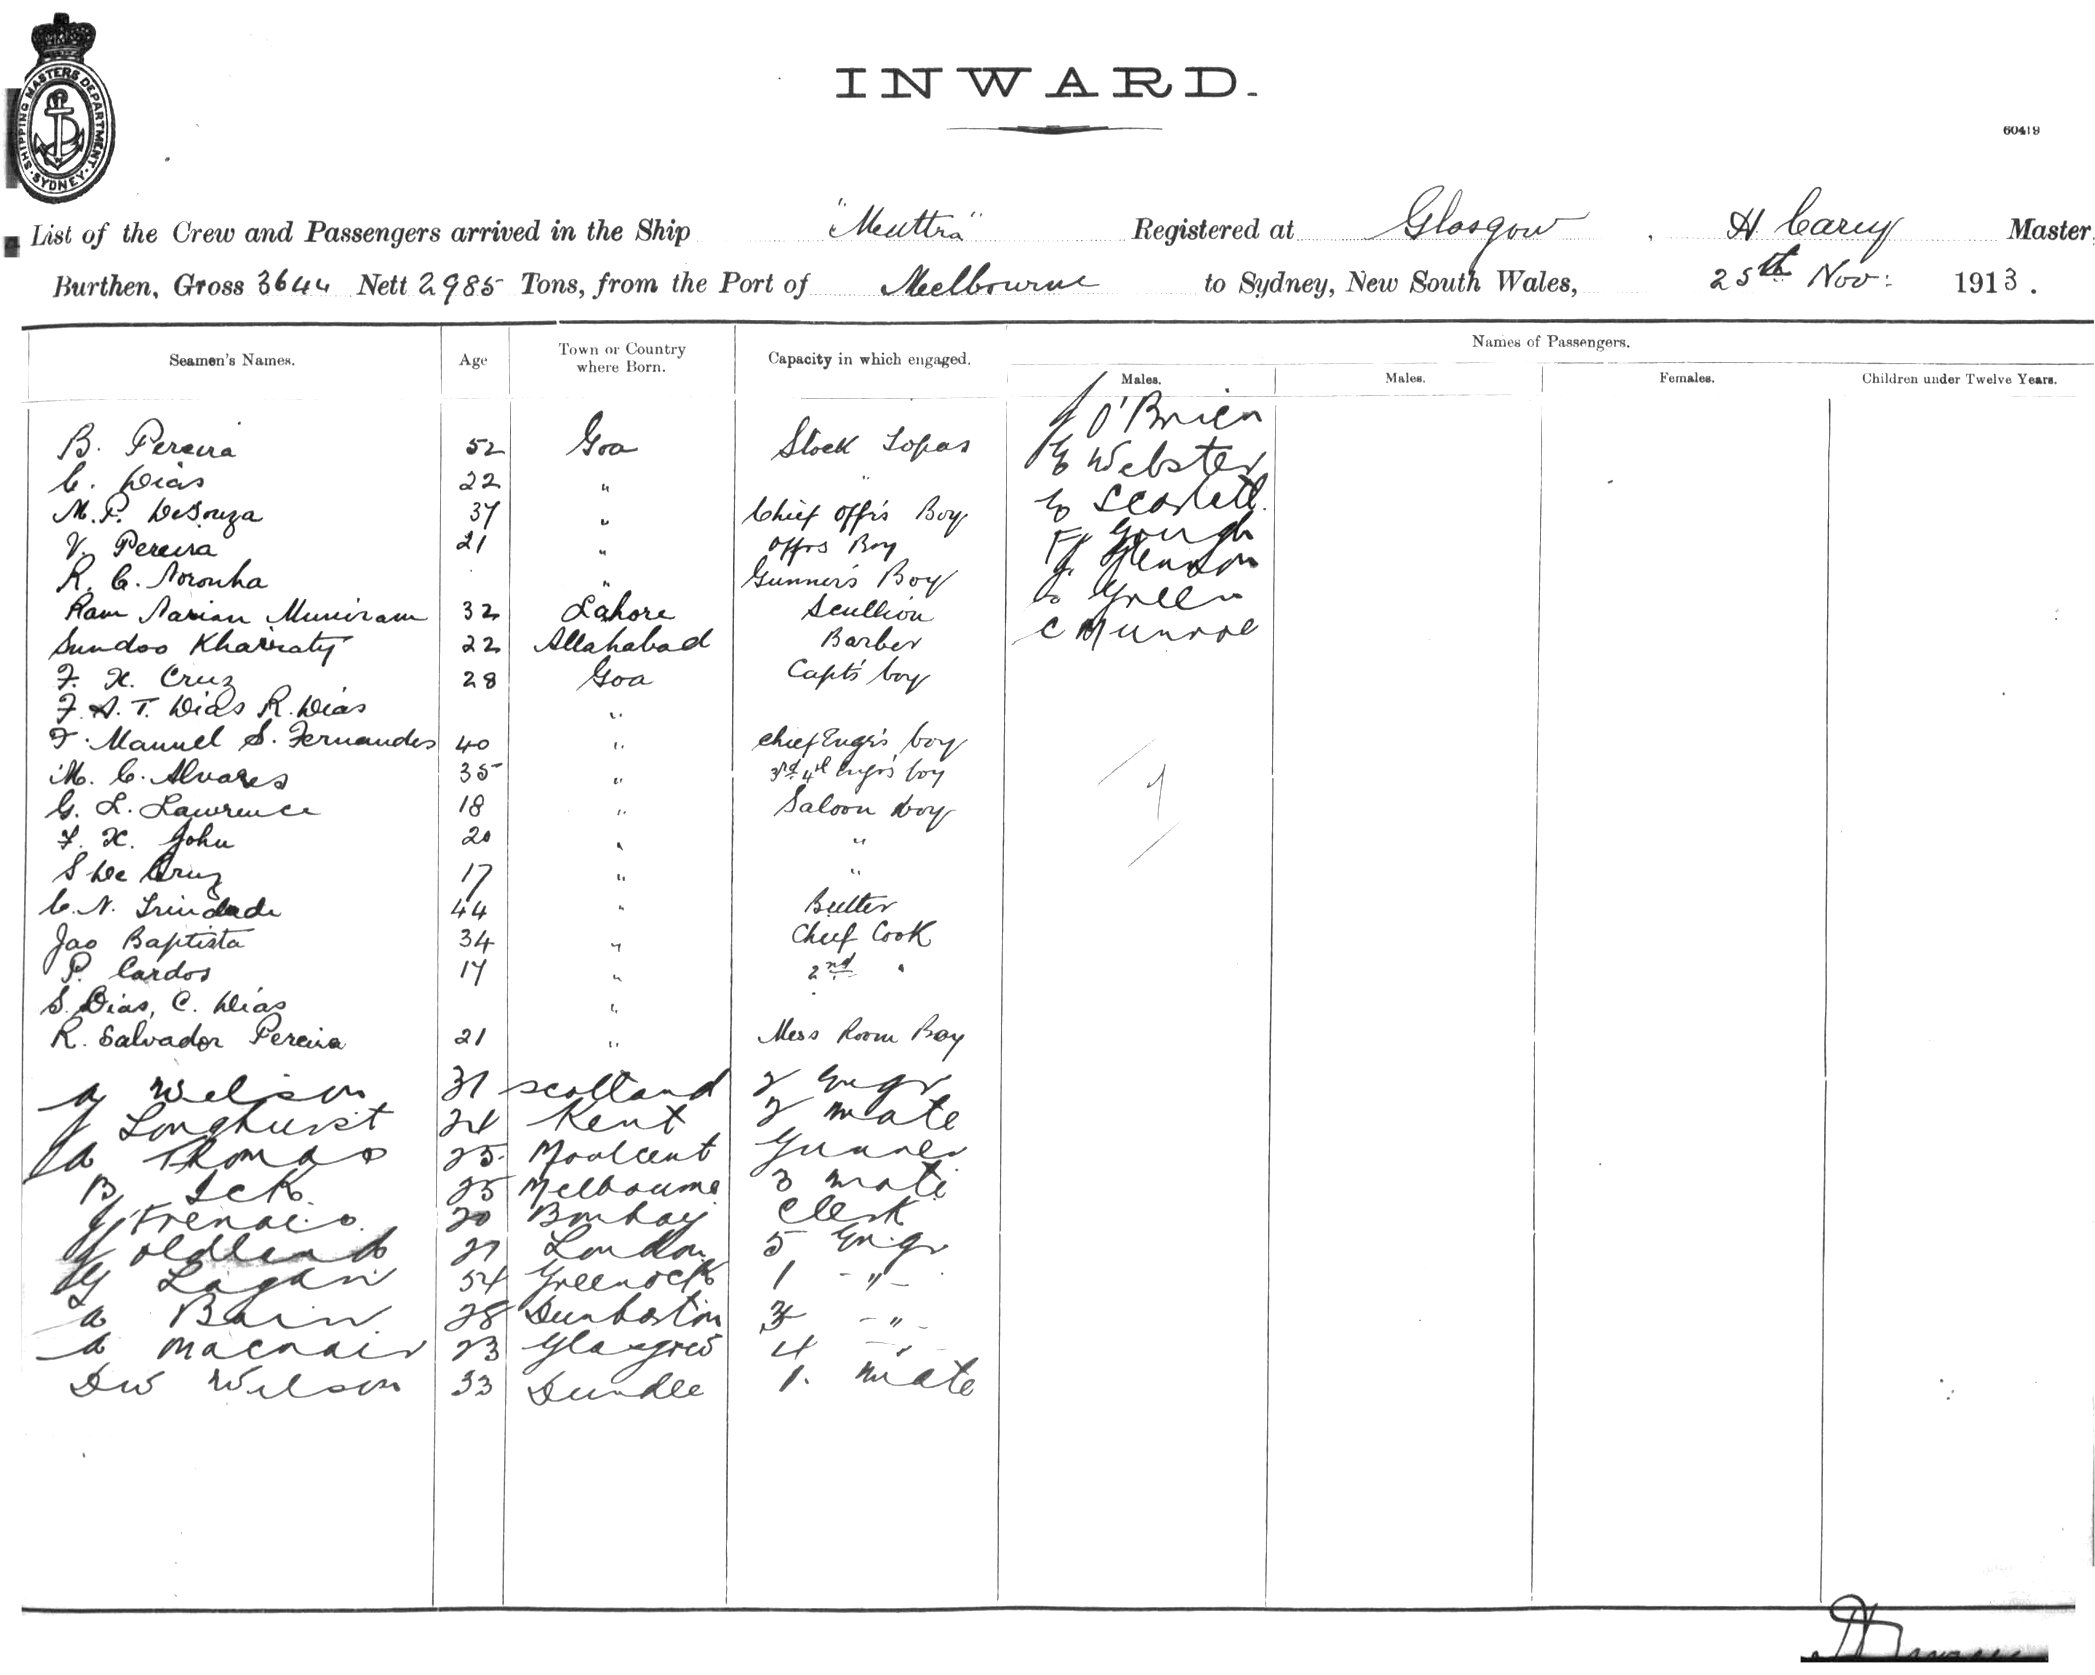 SHIPPING MASTERS DEPARTMENT
SYDNEY
INWARD.
60419
List of the Crew and Passengers arrived in the Ship "Muttra" Registered at Glasgow, H Carey Master,
Burthen, Gross 3644 Nett 2985 Tons, from the Port of Melbourne to Sydney, New South Wales, 25th Nov: 1913.
Seamen's Names. Age Town or Country where Born. Capacity in which engaged. Names of Passengers.
Males. Males. Females. Children under Twelve Years.
J O'Brien
B. Pereira 52 Goa Stock Topas
Webster
C. Dias 22 " "
M. P. DeSouza 37 " Chief Offrs Boy
V. Pereira 21 " Offrs Boy
Gough
R. C. Noronha " Gunner's Boy
Green
Ram Narian Muniram 32 Lahore Scullion
C Munroe
Sundoo Khairaty 22 Allahabad Barber
F. X. Cruz 28 Goa Capt's boy
F. A. T. Dias R. Dias "
F. Manuel S. Fernandes 40 " Chief Engr's boy
M. C. Alvares 35 " 3rd 4th Engr's boy
G. L. Lawrence 18 " Saloon boy
F. X. John 20 " "
S De Cruz 17 " "
C. N. Trindade 44 " Butler
Jao Baptista 34 " Chief Cook
P. Cardos 17 " 2nd "
S. Dias, C. Dias "
R. Salvador Pereira 21 " Mess Room Boy
Wilson 31 Scotland 2 Engr
J Longhurst 24 Kent 2 mate
A Thomas 25 Gunner
B 25 Melbourne 3 mate
J 20 Bombay Clerk
J Oldland 27 London 5 Engr
Lagan 54 Greenock 1 -"-
A Bain 28 Dunbarton 3 -"-
A Macnair 23 Glasgow 4 -"-
DW Wilson 33 Dundee 1. mate
7